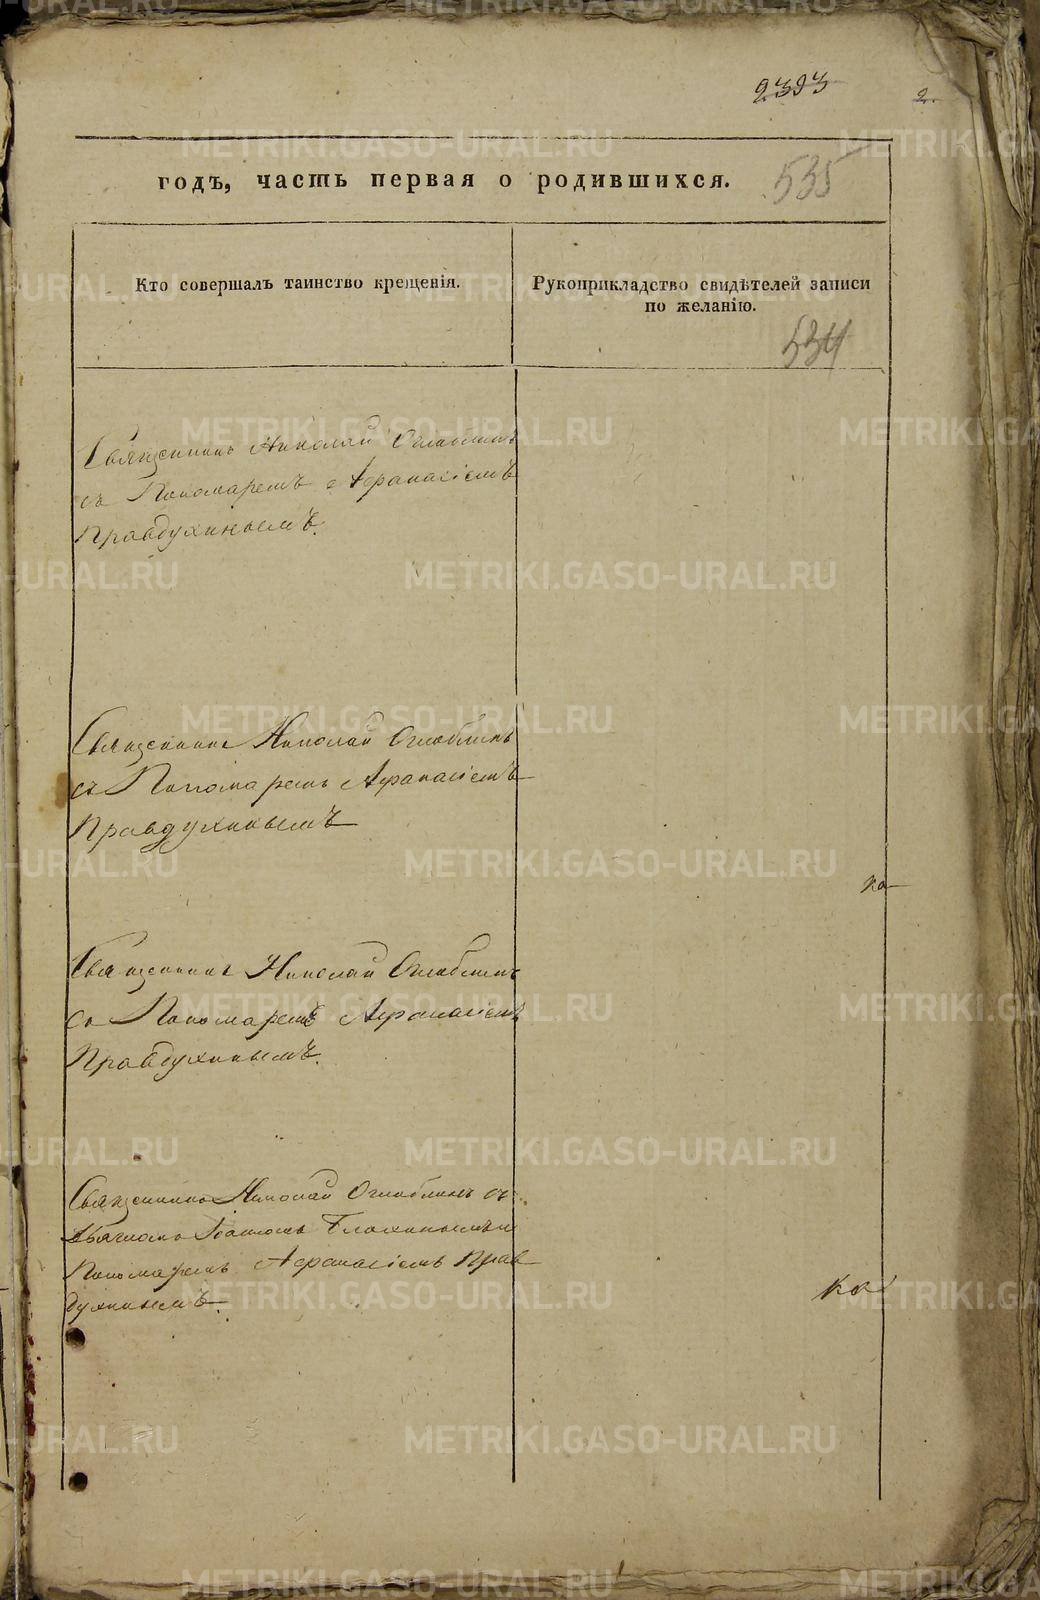 2393
2.
годъ, часть первая о родившихся.
535
Кто совершалъ таинство крещенія.
Рукоприкладство свидѣтелей записи
по желанію.
534
Священникъ Николай Оглоблинъ
съ Пономаремъ Афанасіемъ
Правдухинымъ.
Священникъ Николай Оглоблинъ
съ Пономаремъ Афанасіемъ
Правдухинымъ
ка
Священникъ Николай Оглоблинъ
съ Пономаремъ Афанасіемъ
Правдухинымъ.
Священникъ Николай Оглоблинъ съ
Іоанномъ
Пономаремъ Афанасіемъ Прав
духинымъ.
ка
METRIKI.GASO-URAL.RU